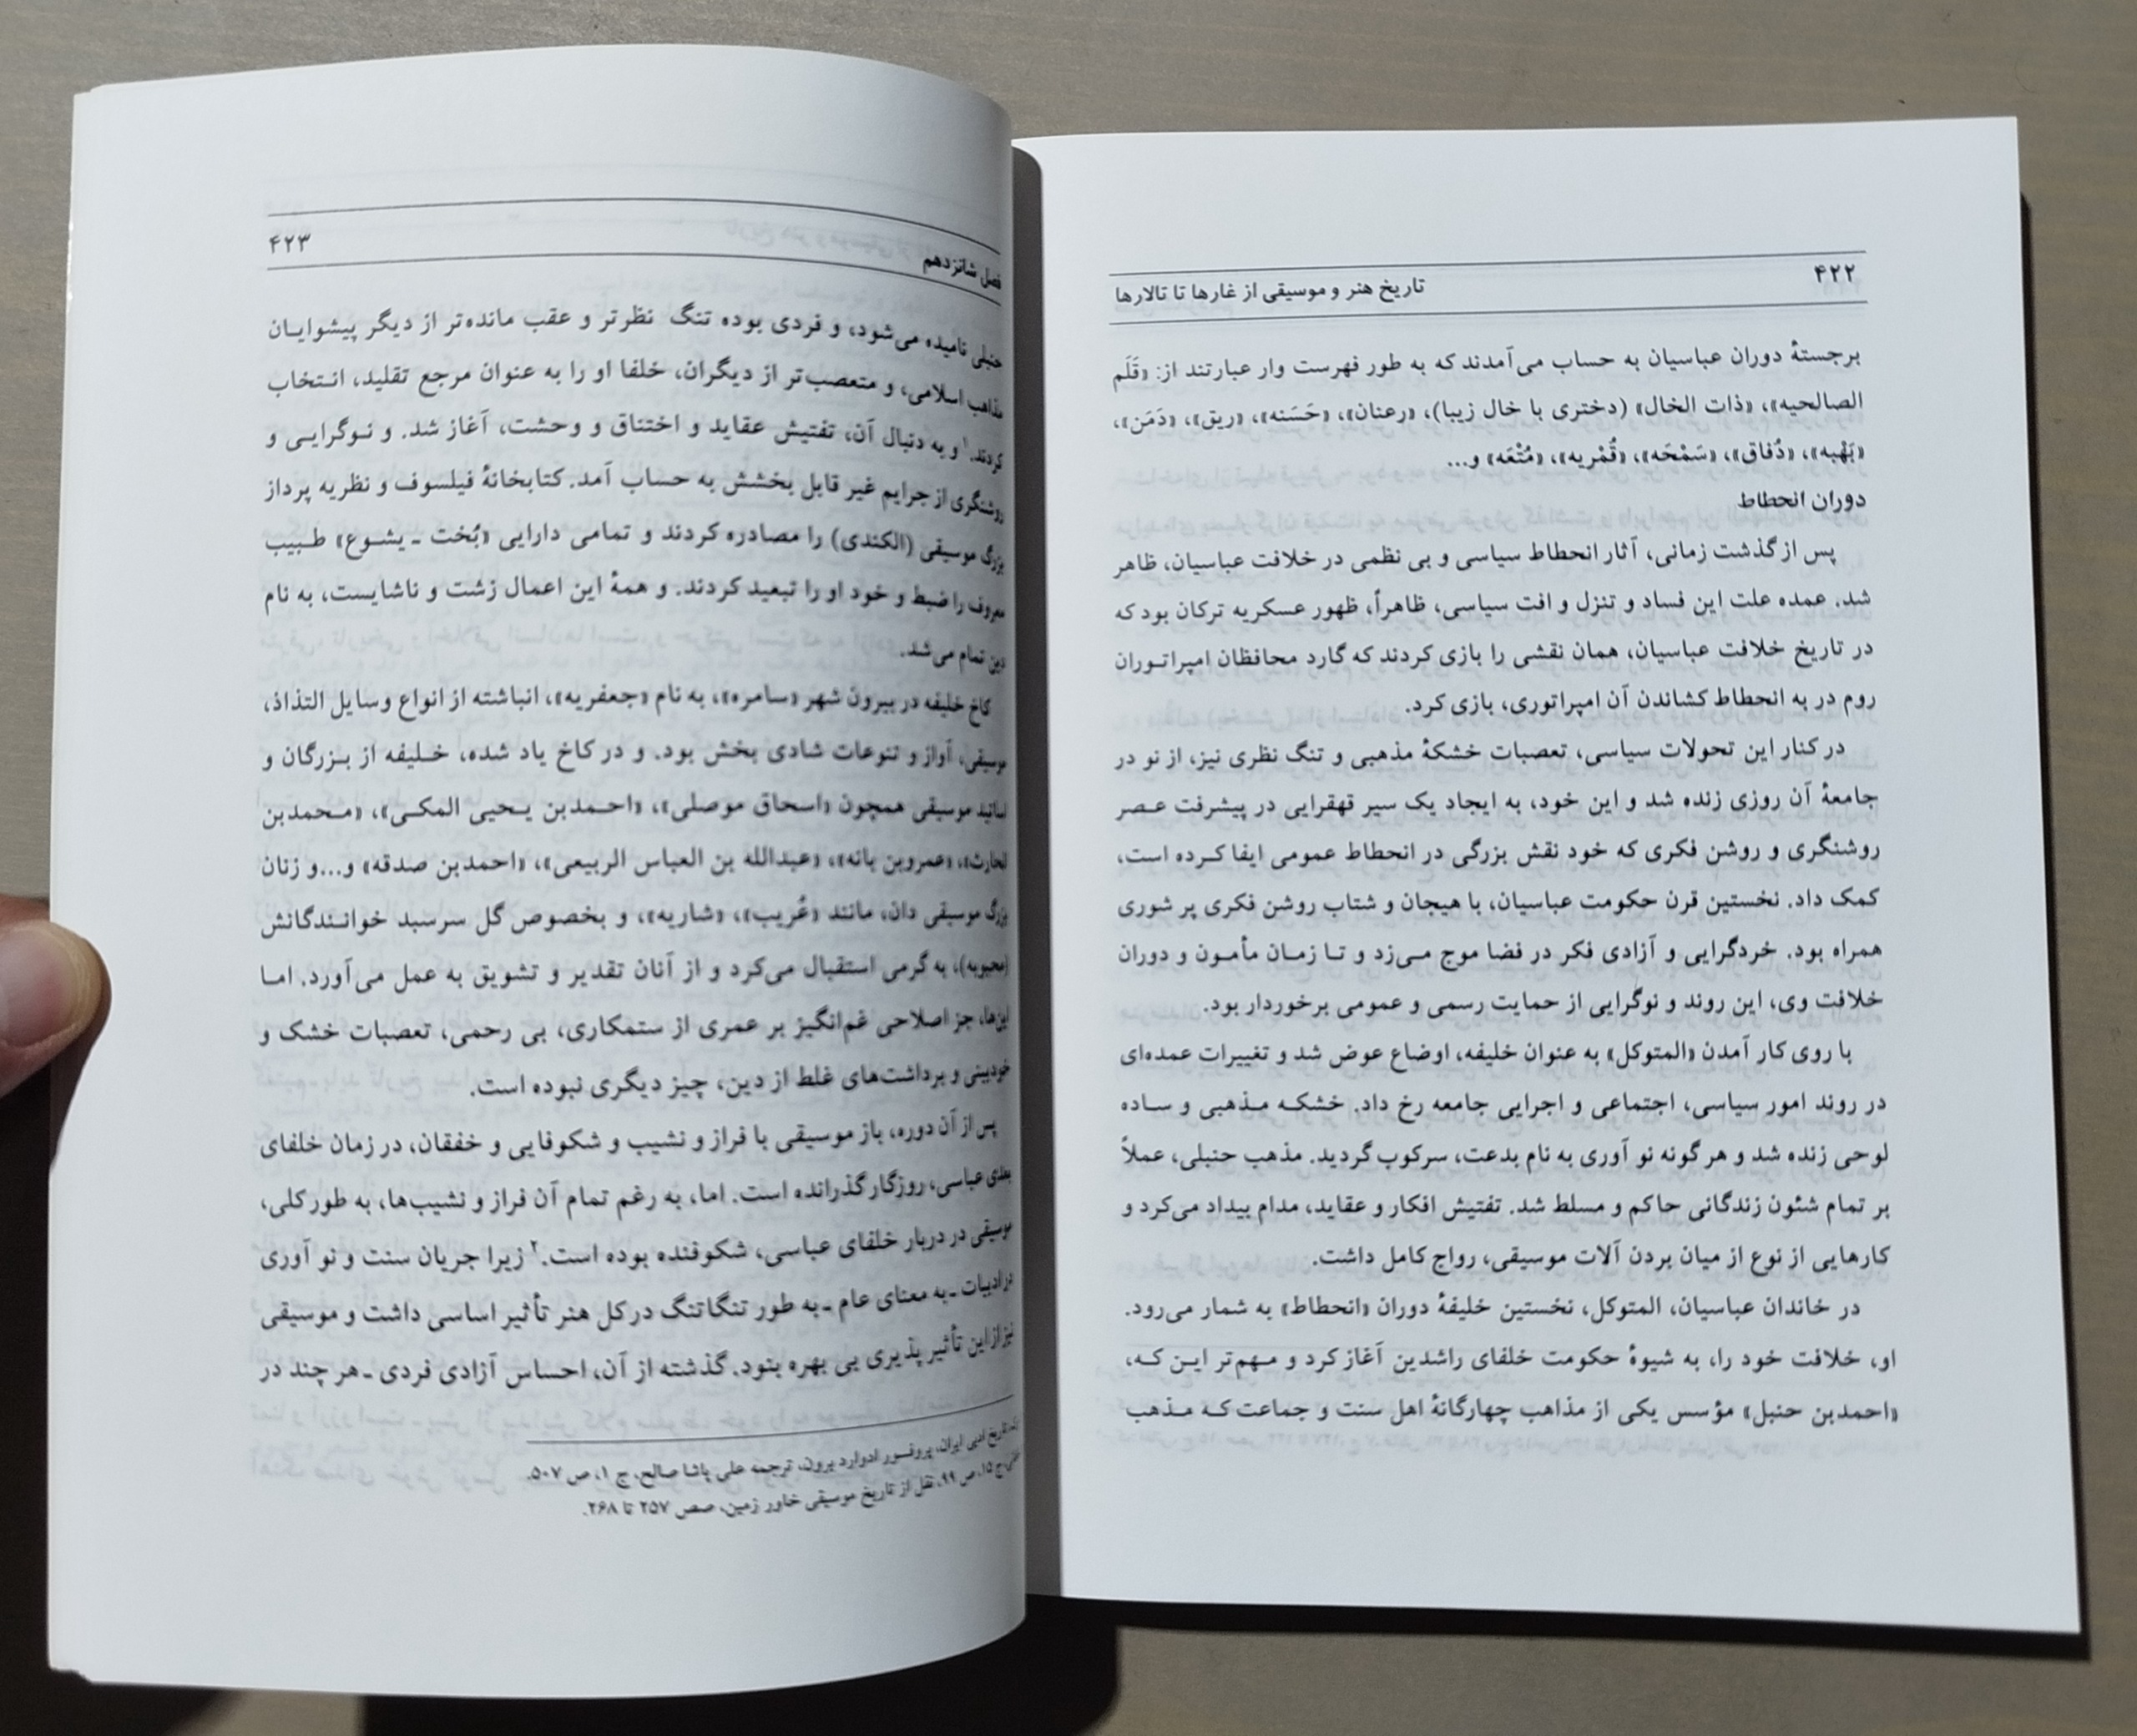 ۴۲۲
تاریخ هنر و موسیقی از غارها تا تالارها
برجستهٔ دوران عباسیان به حساب می‌آمدند که به طور فهرست وار عبارتند از: «قَلَم
الصالحیه»، «ذات الخال» (دختری با خال زیبا)، «رعنان»، «حَسَنه»، «ریق»، «دَمَن»،
«بَهْبه»، «دُفاق»، «سَمْحَه»، «قُمْریه»، «مُتْعَه» و...
دوران انحطاط
پس از گذشت زمانی، آثار انحطاط سیاسی و بی نظمی در خلافت عباسیان، ظاهر
شد. عمده علت این فساد و تنزل و افت سیاسی، ظاهراً، ظهور عسکریه ترکان بود که
در تاریخ خلافت عباسیان، همان نقشی را بازی کردند که گارد محافظان امپراتوران
روم در به انحطاط کشاندن آن امپراتوری، بازی کرد.
در کنار این تحولات سیاسی، تعصبات خشکهٔ مذهبی و تنگ نظری نیز، از نو در
جامعهٔ آن روزی زنده شد و این خود، به ایجاد یک سیر قهقرایی در پیشرفت عصر
روشنگری و روشن فکری که خود نقش بزرگی در انحطاط عمومی ایفا کرده است،
کمک داد. نخستین قرن حکومت عباسیان، با هیجان و شتاب روشن فکری پر شوری
همراه بود. خردگرایی و آزادی فکر در فضا موج می‌زد و تا زمان مأمون و دوران
خلافت وی، این روند و نوگرایی از حمایت رسمی و عمومی برخوردار بود.
با روی کار آمدن «المتوکل» به عنوان خلیفه، اوضاع عوض شد و تغییرات عمده‌ای
در روند امور سیاسی، اجتماعی و اجرایی جامعه رخ داد. خشکه مذهبی و ساده
لوحی زنده شد و هر گونه نو آوری به نام بدعت، سرکوب گردید. مذهب حنبلی، عملاً
بر تمام شئون زندگانی حاکم و مسلط شد. تفتیش افکار و عقاید، مدام بیداد می‌کرد و
کارهایی از نوع از میان بردن آلات موسیقی، رواج کامل داشت.
در خاندان عباسیان، المتوکل، نخستین خلیفهٔ دوران «انحطاط» به شمار می‌رود.
او، خلافت خود را، به شیوهٔ حکومت خلفای راشدین آغاز کرد و مهم‌تر این که،
«احمدبن حنبل» مؤسس یکی از مذاهب چهارگانهٔ اهل سنت و جماعت که مذهب
فصل شانزدهم
۴۲۳
حنبلی نامیده می‌شود، و فردی بوده تنگ نظرتر و عقب مانده‌تر از دیگر پیشوایان
مذاهب اسلامی، و متعصب‌تر از دیگران، خلفا او را به عنوان مرجع تقلید، انتخاب
کردند.۱ و به دنبال آن، تفتیش عقاید و اختناق و وحشت، آغاز شد. و نوگرایی و
روشنگری از جرایم غیر قابل بخشش به حساب آمد. کتابخانهٔ فیلسوف و نظریه پرداز
بزرگ موسیقی (الکندی) را مصادره کردند و تمامی دارایی «بُخت ـ یشوع» طبیب
معروف را ضبط و خود او را تبعید کردند. و همهٔ این اعمال زشت و ناشایست، به نام
دین تمام می‌شد.
کاخ خلیفه در بیرون شهر «سامره»، به نام «جعفریه»، انباشته از انواع وسایل التذاذ،
موسیقی، آواز و تنوعات شادی بخش بود. و در کاخ یاد شده، خلیفه از بزرگان و
اساتید موسیقی همچون «اسحاق موصلی»، «احمدبن یحیی المکی»، «محمدبن
الحارث»، «عمروبن بانه»، «عبدالله بن العباس الربیعی»، «احمدبن صدقه» و...و زنان
بزرگ موسیقی دان، مانند «عُریب»، «شاریه»، و بخصوص گل سرسبد خوانندگانش
(محبوبه)، به گرمی استقبال می‌کرد و از آنان تقدیر و تشویق به عمل می‌آورد. اما
این‌ها، جز اصلاحی غم‌انگیز بر عمری از ستمکاری، بی رحمی، تعصبات خشک و
خودبینی و برداشت‌های غلط از دین، چیز دیگری نبوده است.
پس از آن دوره، باز موسیقی با فراز و نشیب و شکوفایی و خفقان، در زمان خلفای
بعدی عباسی، روزگار گذرانده است. اما، به رغم تمام آن فراز و نشیب‌ها، به طور کلی،
موسیقی در دربار خلفای عباسی، شکوفنده بوده است.۲ زیرا جریان سنت و نو آوری
در ادبیات ـ به معنای عام ـ به طور تنگاتنگ در کل هنر تأثیر اساسی داشت و موسیقی
نیز از این تأثیر پذیری بی بهره بنود. گذشته از آن، احساس آزادی فردی ـ هر چند در
تاریخ ادبی ایران، پروفسور ادوارد برون، ترجمه علی پاشا صالح، ج ۱، ص ۵۰۷.
ج ۱۵، ص ۹۹، نقل از تاریخ موسیقی خاور زمین، صص ۲۵۷ تا ۲۶۸.